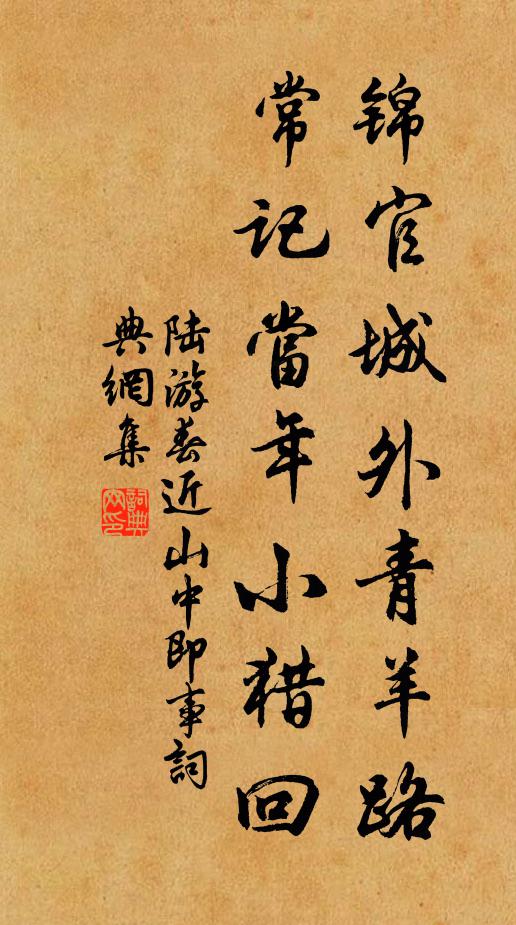 锦官城外青羊路
常记當年小猎回
陆游春近山中即事詞
典網集
詞典网印